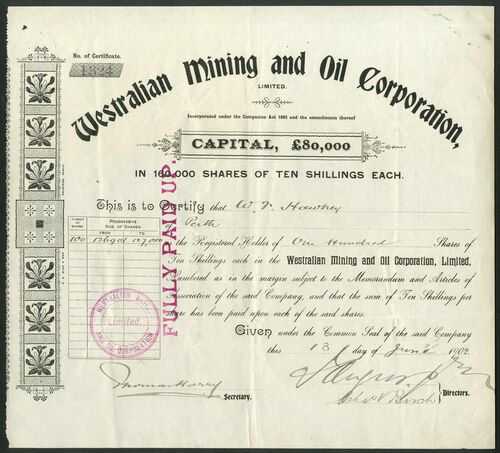 No. of Certificate.
1324
Westralian Mining and Oil Corporation,
LIMITED.
Incorporated under the Companies Act 1893 and the amendments thereof
CAPITAL, £80,000
IN 160,000 SHARES OF TEN SHILLINGS EACH.
This is to Certify that W. T. Hawkey
of Perth
NUMBER OF SHARES
PROGRESSIVE NOS. OF SHARES
100 126901 127,000
is the Registered Holder of One Hundred Shares of
Ten Shillings each in the Westralian Mining and Oil Corporation, Limited,
Numbered as in the margin subject to the Memorandum and Articles of
Association of the said Company, and that the sum of Ten Shillings per
share has been paid upon each of the said shares.
FULLY PAID UP.
WESTRALIAN MINING
Limited.
AND OIL CORPORATION
Given under the Common Seal of the said Company
this 13 day of June 1902
Thomas Harry
Secretary.
Directors.